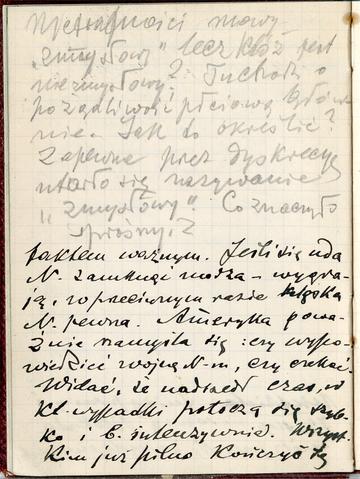 Nietrafności mowy
"zmysłowy" lecz któż jest
niezmysłowy? Tu chodzi o
pożądliwość płciową głów-
nie. Jak to określić?
Zapewne przez dyskrecję
utarło się nazywanie
"zmysłowy". Co znaczyło
sprośny?
faktem ważnym. Jeśli się uda
N. zamknąć morza - wygra-
ją, w przeciwnym razie klęska
N. pewna. Ameryka powa-
żnie namyśla się: czy wypo-
wiedzieć wojnę N-m, czy czekać.
Widać, że nadszedł czas, w
kt. wypadki potoczą się szyb-
ko i b. intenzywnie. Wszyst-
kim już pilno kończyć tę